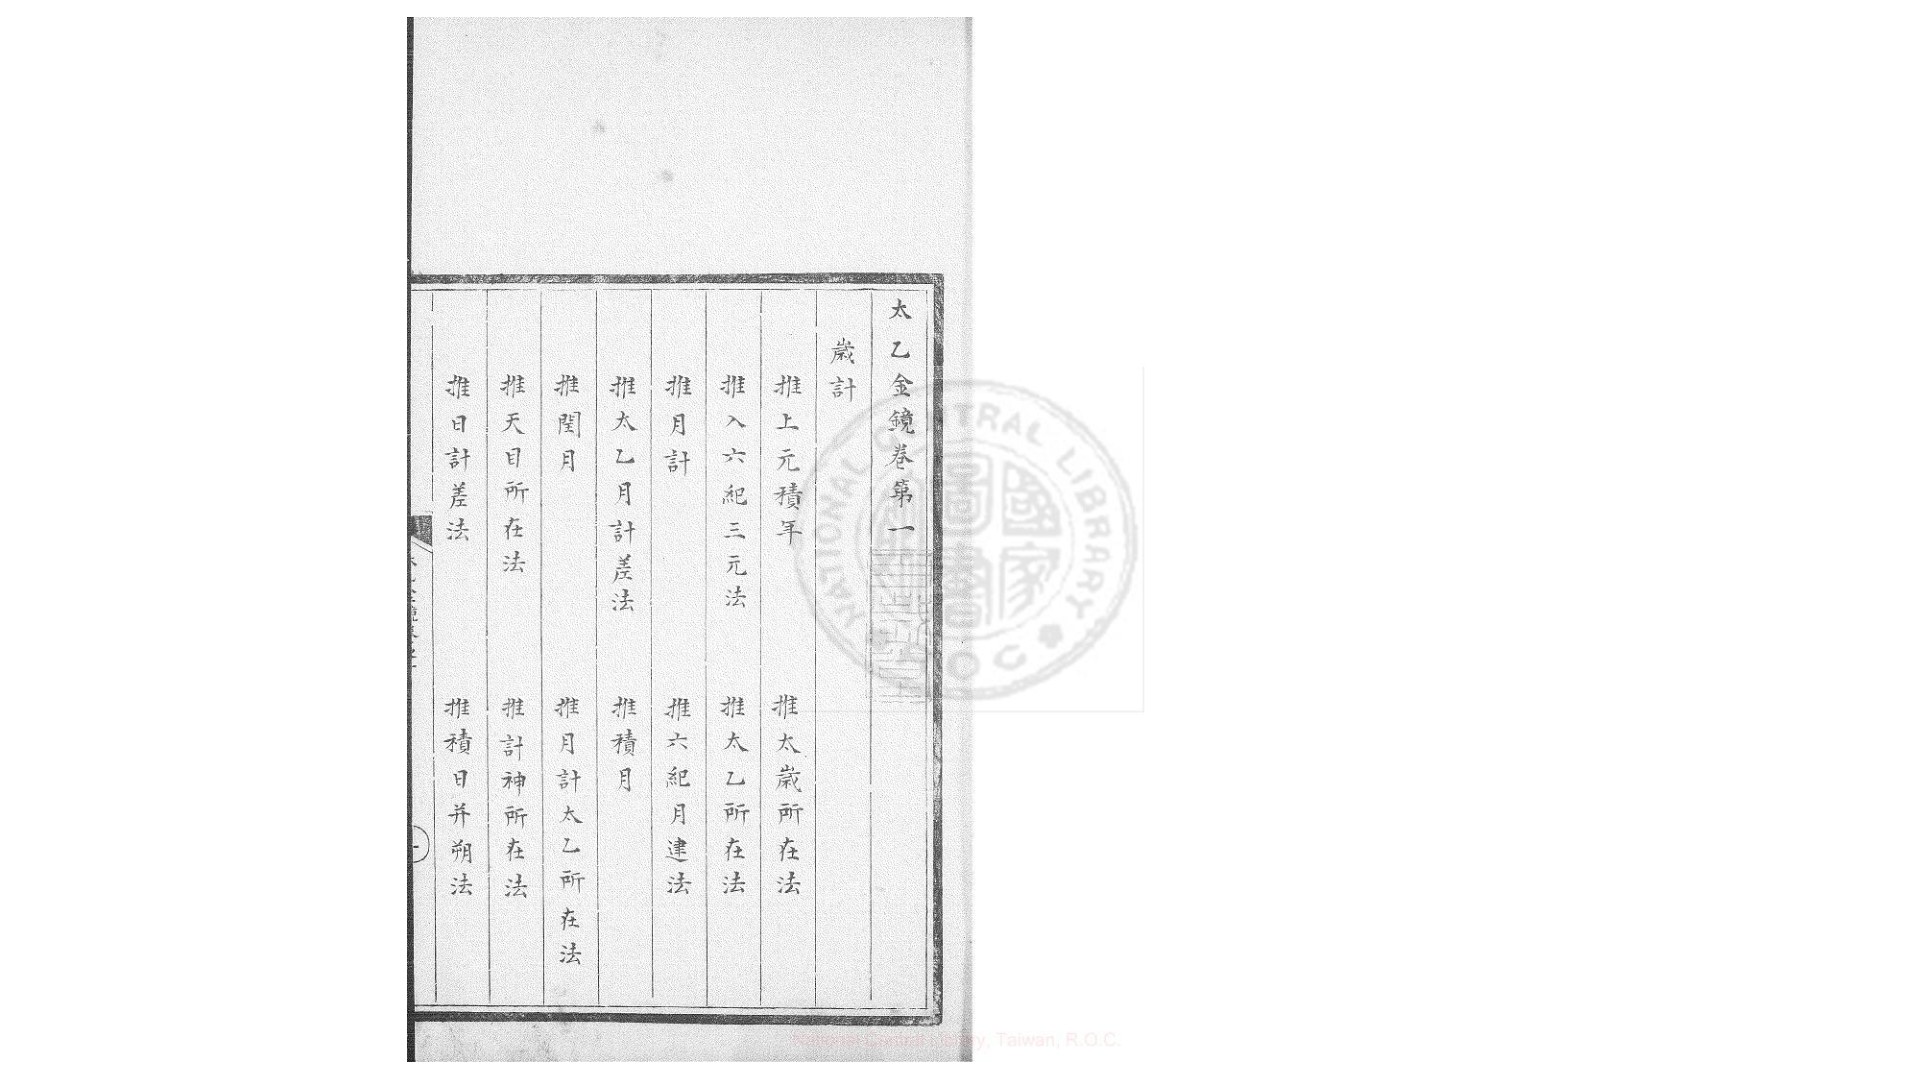 太乙金鏡卷第一
歲計
推上元積年 推太歲所在法
推入六紀三元法 推太乙所在法
推月計 推六紀月建法
推太乙月計差法 推積月
推閏月 推月計太乙所在法
推天目所在法 推計神所在法
推日計差法 推積日并朔法
NATIONAL CENTRAL LIBRARY
R.O.C.
國家圖書館
National Central Library, Taiwan, R.O.C.